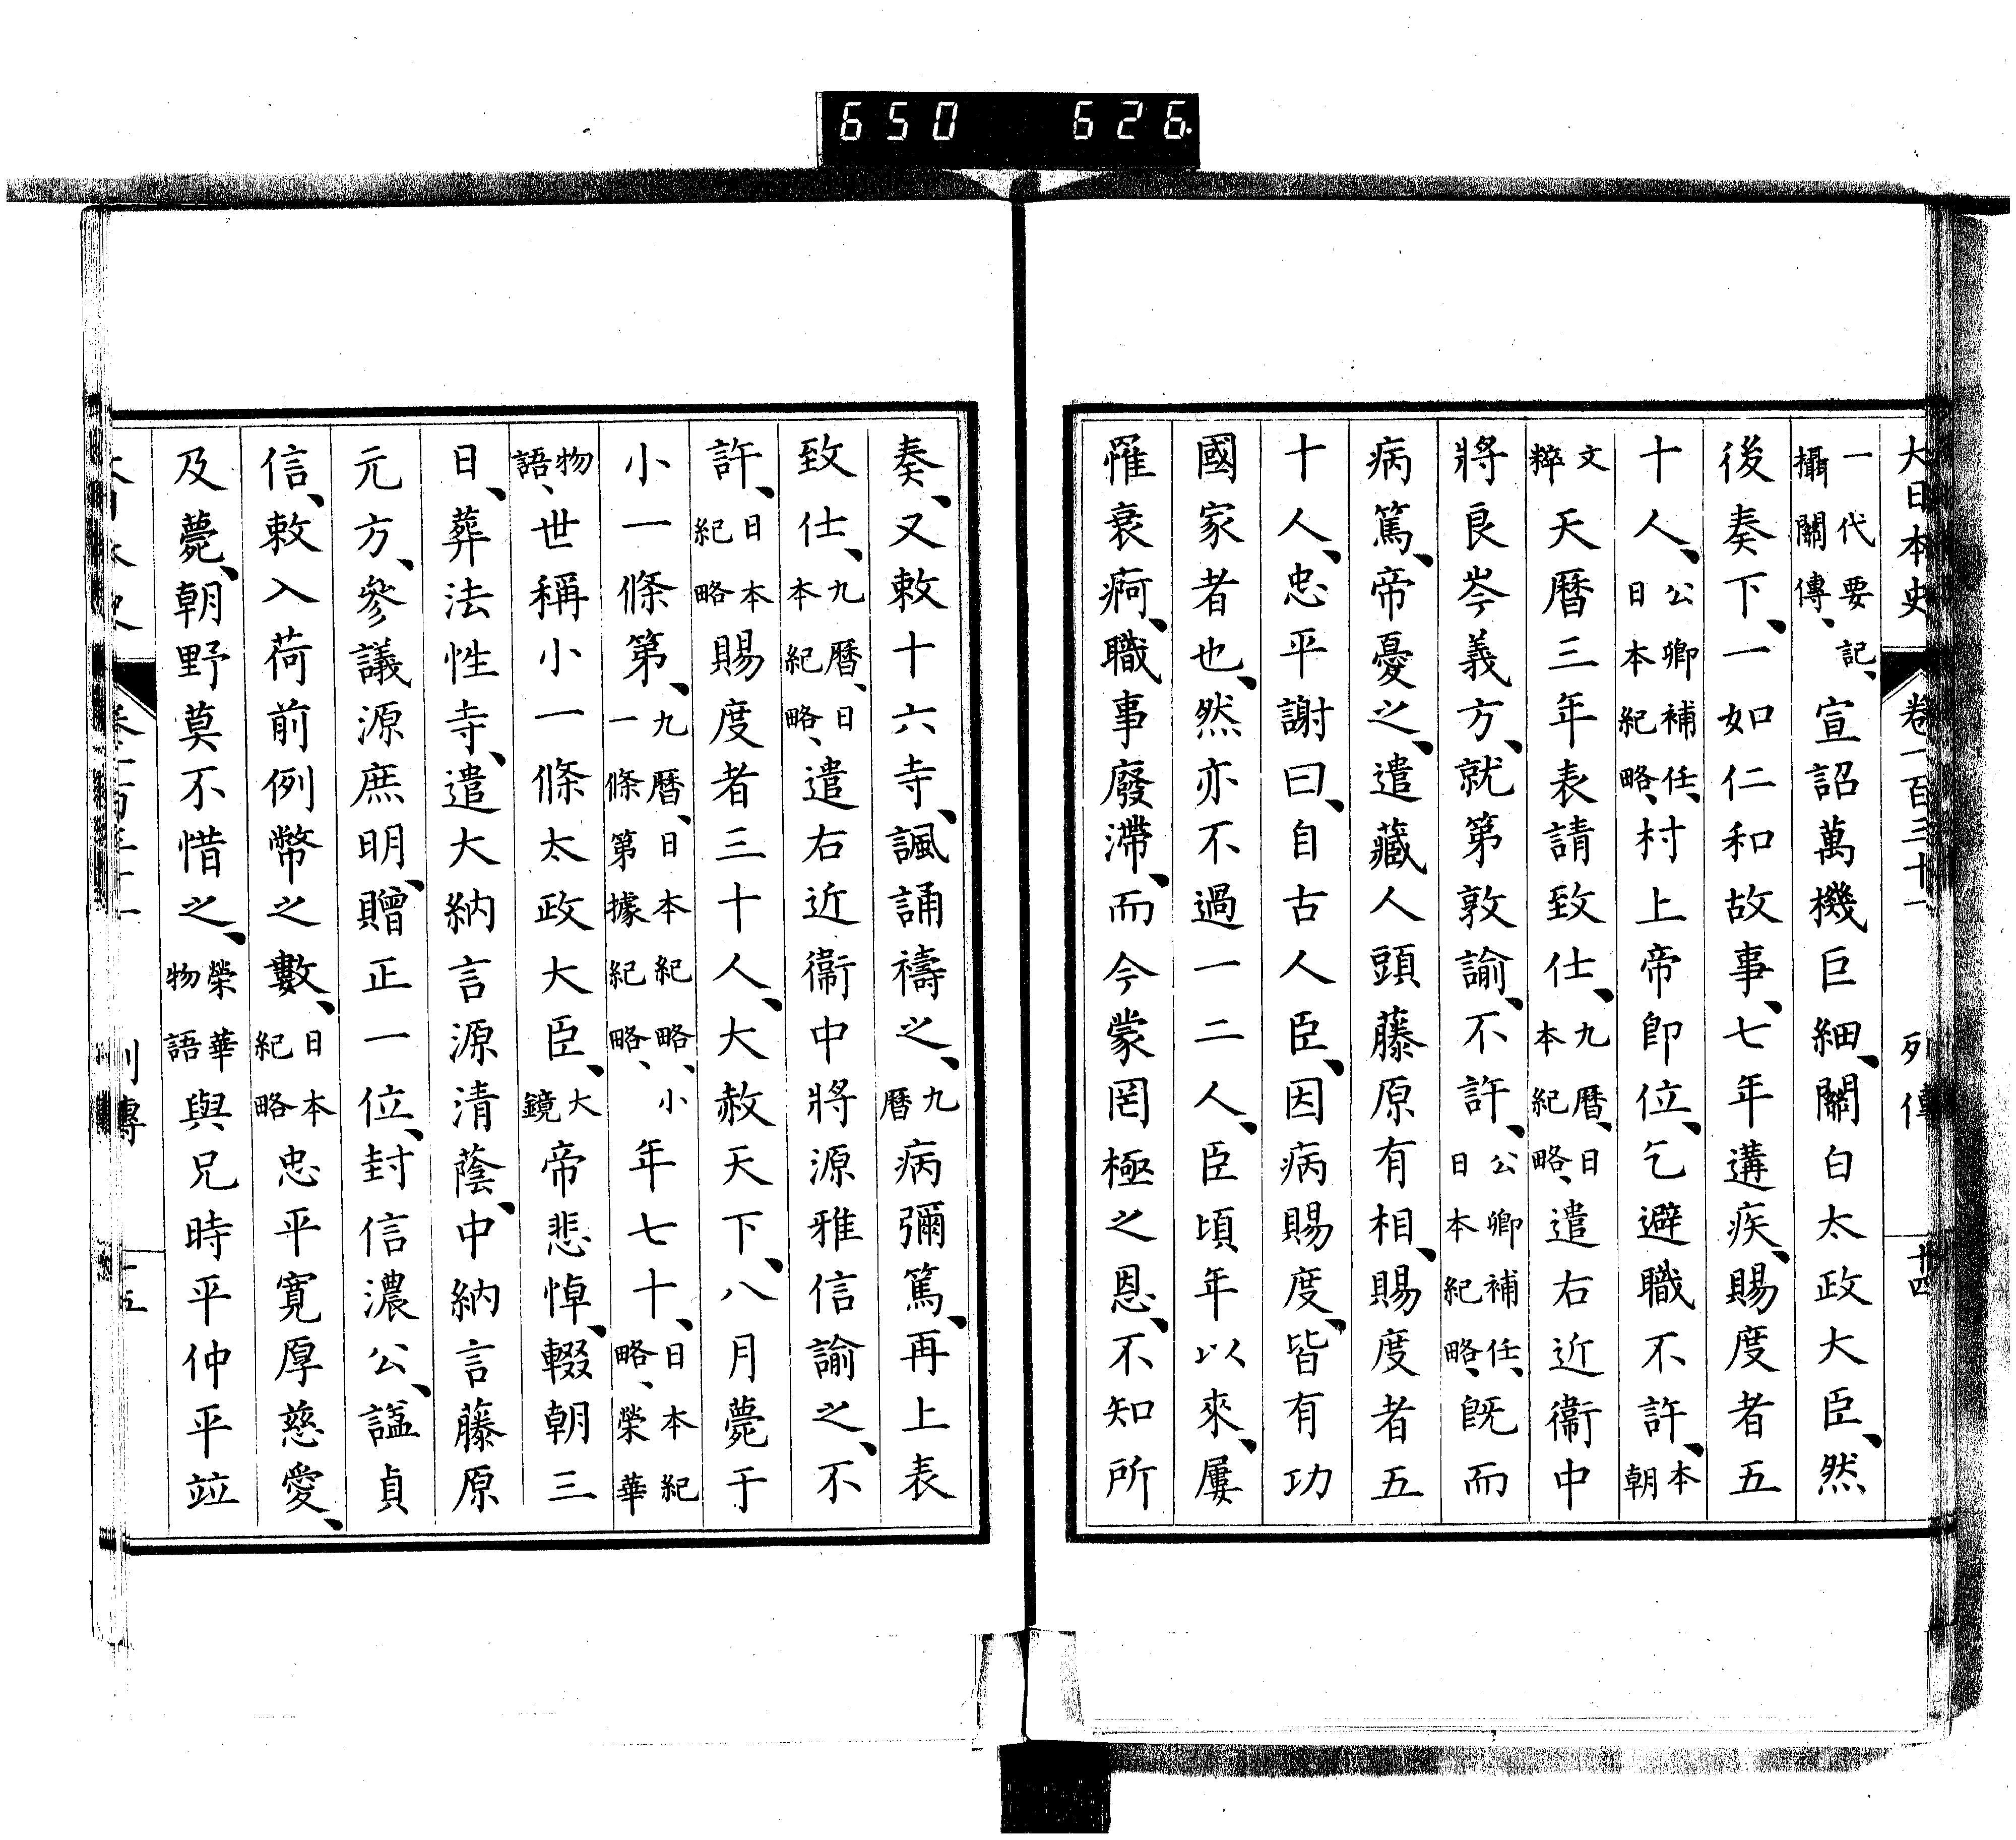 650 626.
大日本史 卷一百三十一 列傳 十四
一代要記、攝關傳、宣詔萬機巨細、關白太政大臣、然
後奏下、一如仁和故事、七年遘疾、賜度者五
十人、公卿補任、日本紀略、村上帝卽位、乞避職不許、本朝
文粹天曆三年表請致仕、九曆、日本紀略、遣右近衞中
將良岑義方、就第敦諭、不許、公卿補任、日本紀略、旣而
病篤、帝憂之、遣藏人頭藤原有相、賜度者五
十人、忠平謝曰、自古人臣、因病賜度、皆有功
國家者也、然亦不過一二人、臣頃年以來、屢
罹衰痾、職事廢滯、而今蒙罔極之恩、不知所
奏、又敕十六寺、諷誦禱之、九曆病彌篤、再上表
致仕、九曆、日本紀略、遣右近衞中將源雅信諭之、不
許、日本紀略賜度者三十人、大赦天下、八月薨于
小一條第、九曆、日本紀略、小一條第據紀略、年七十、日本紀略、榮華
物語、世稱小一條太政大臣、大鏡帝悲悼、輟朝三
日、葬法性寺、遣大納言源清蔭、中納言藤原
元方、參議源庶明、贈正一位、封信濃公、謚貞
信、敕入荷前例幣之數、日本紀略忠平寬厚慈愛、
及薨、朝野莫不惜之、榮華物語與兄時平仲平竝